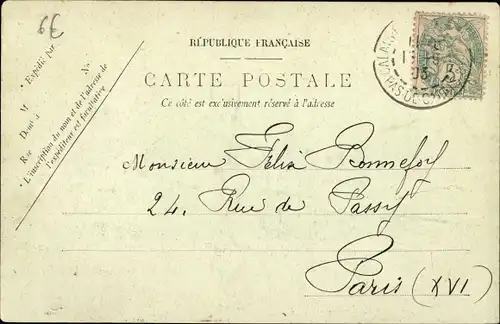 6€
RÉPUBLIQUE FRANÇAISE
CARTE POSTALE
Ce côté est exclusivement réservé à l'adresse
Expédié par
M
N°
Demt à
Rue
L'inscription du nom et de l'adresse de
l'expéditeur est facultative
Monsieur Félix Bonnefoy
24, Rue de Passy
Paris (XVI)